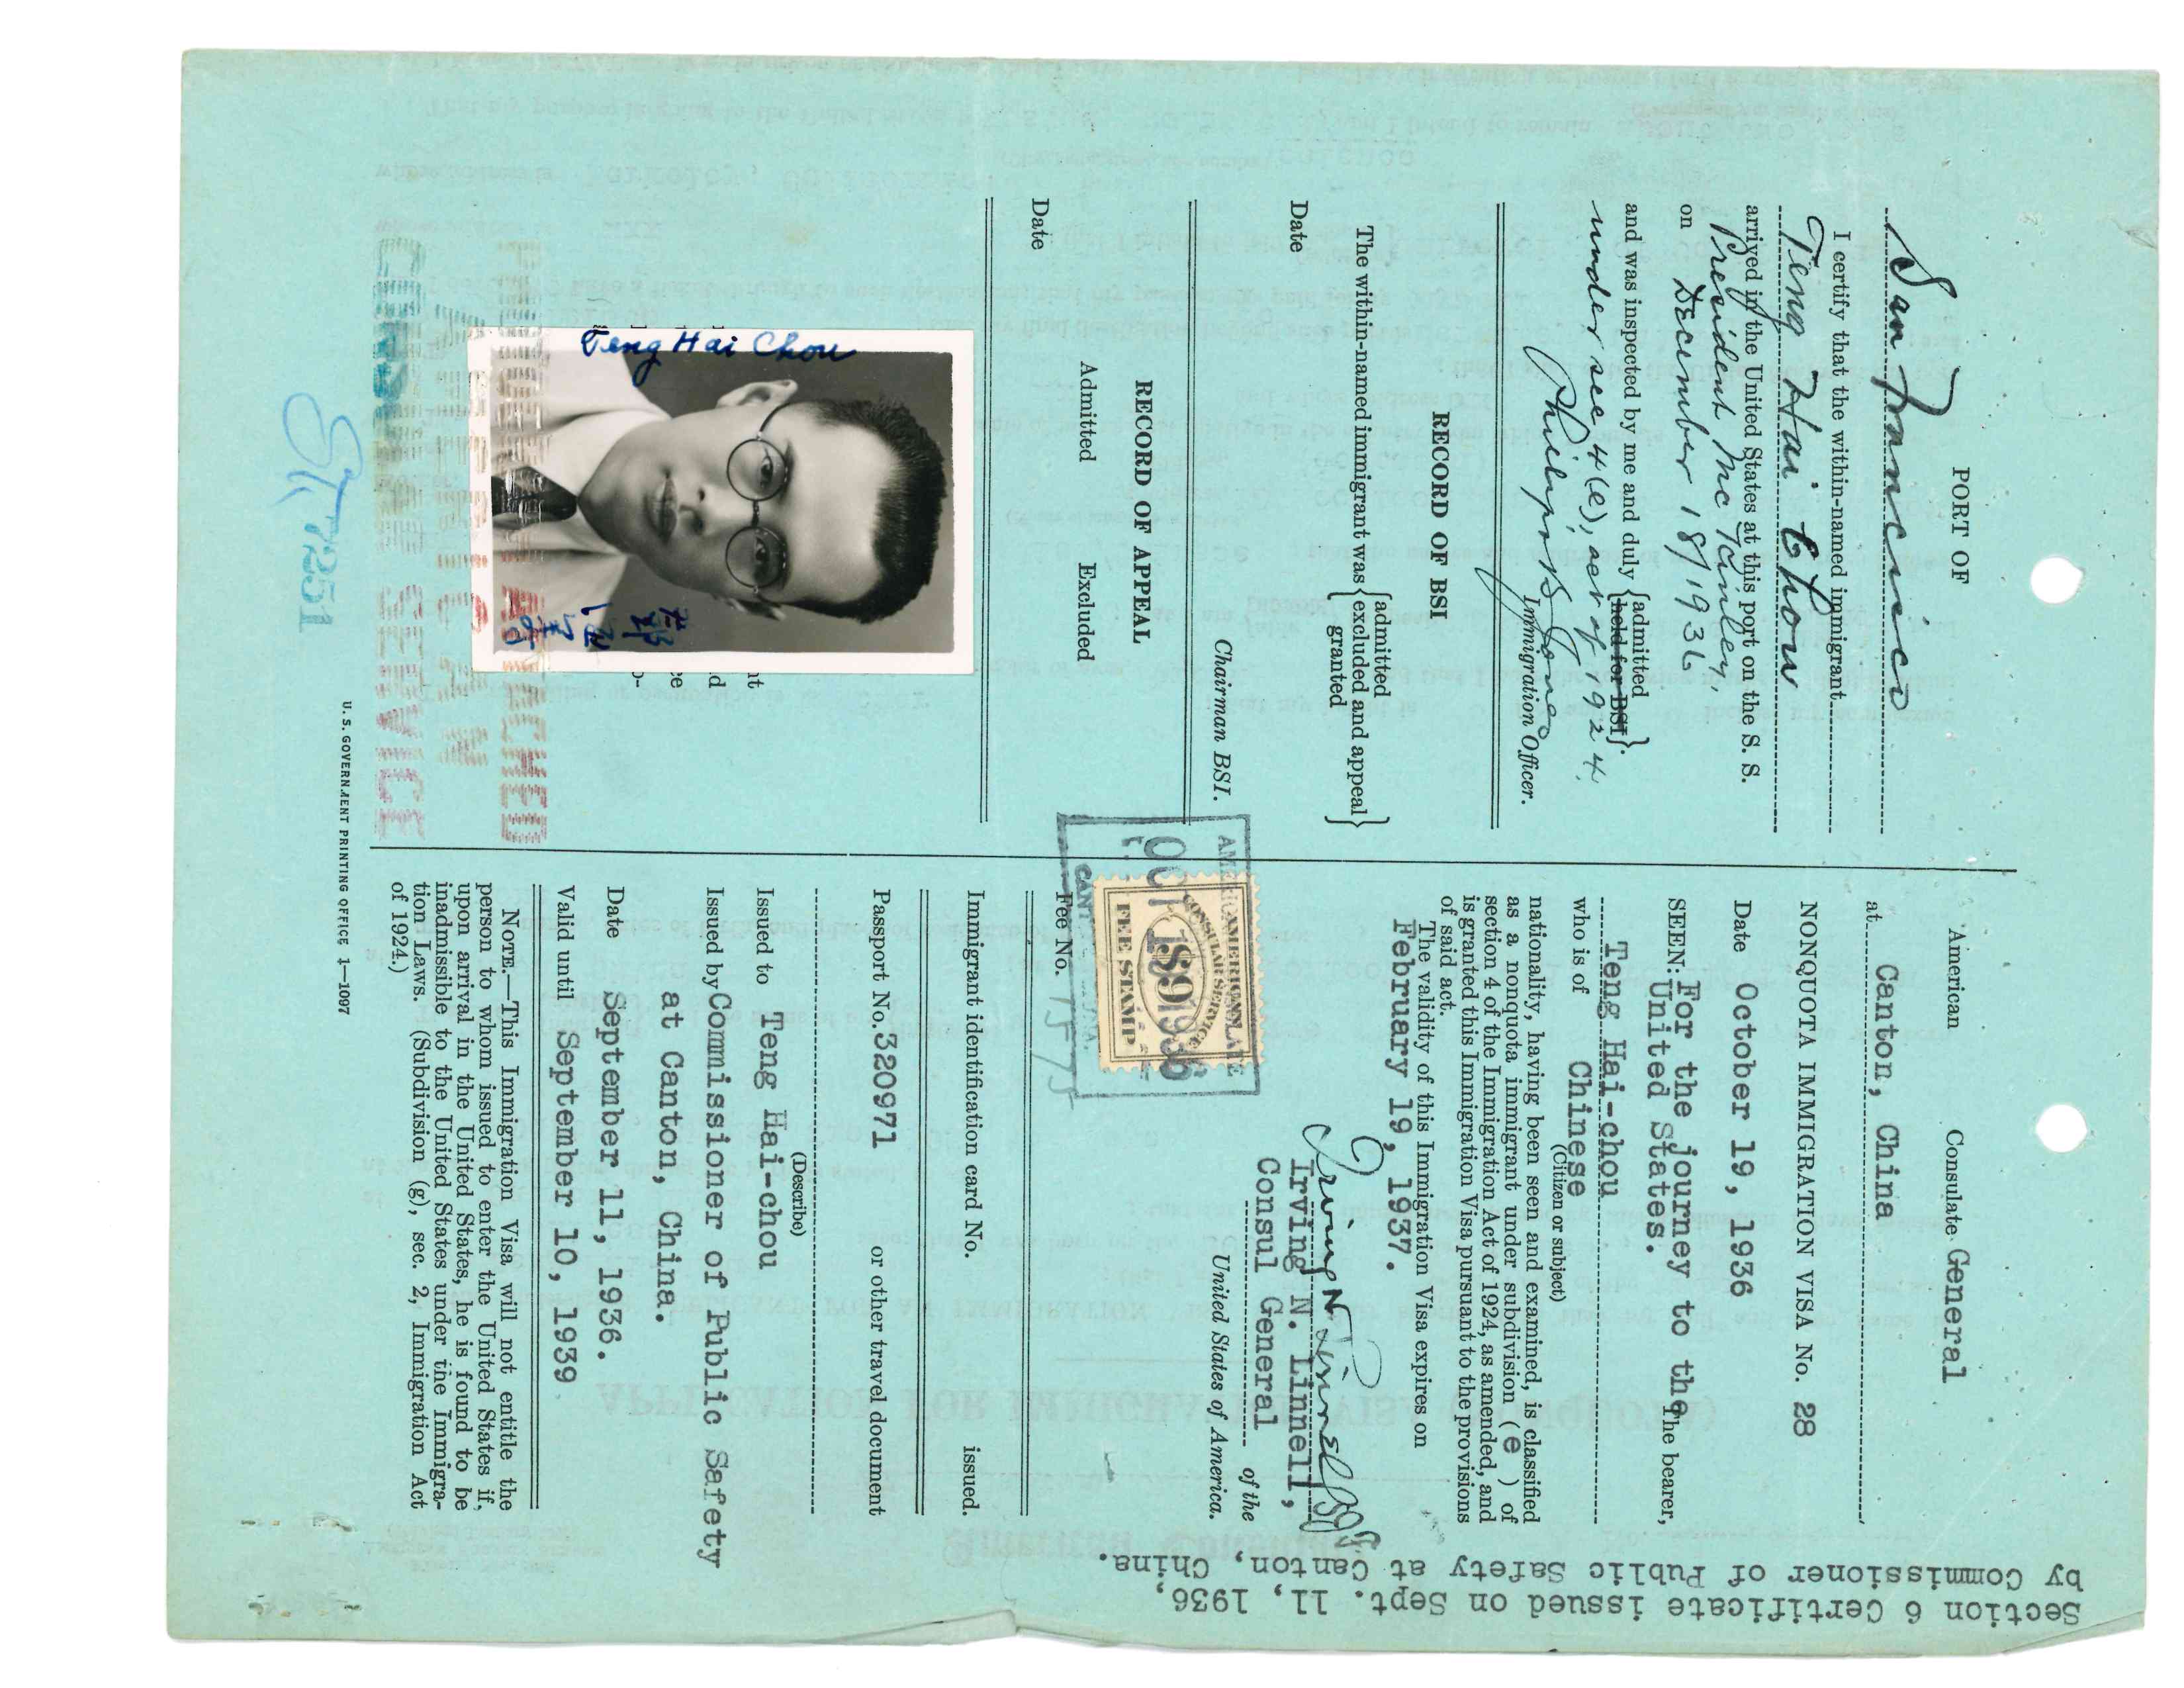 PORT OF
San Francisco
I certify that the within-named immigrant
Teng Hai Chow
arrived in the United States at this port on the S. S.
President McKinley,
on December 18/1936
and was inspected by me and duly {admitted
held for BSI}.
under sec 4(e), act of 1924,
Phillips B Jones
Immigration Officer.
RECORD OF BSI
The within-named immigrant was {admitted
excluded and appeal
granted}
Date
Chairman BSI.
RECORD OF APPEAL
Admitted Excluded
Date
Teng Hai Chou
PHOTOGRAPH ATTACHED
AMERICAN
CONSULAR SERVICE
7251
American Consulate General
at Canton, China
NONQUOTA IMMIGRATION VISA No. 28
Date October 19, 1936
SEEN: For the journey to the The bearer,
United States.
Teng Hai-chou
who is of Chinese
(Citizen or subject)
nationality, having been seen and examined, is classified
as a nonquota immigrant under subdivision ( e ) of
section 4 of the Immigration Act of 1924, as amended, and
is granted this Immigration Visa pursuant to the provisions
of said act.
The validity of this Immigration Visa expires on
February 19, 1937.
Irving N. Linnell
Irving N. Linnell,
Consul General of the
United States of America.
AMERICAN
CONSULAR SERVICE
$9
FEE STAMP
OCT 19 1936
Fee No. 1575
Immigrant identification card No. issued.
Passport No. 320971 or other travel document
(Describe)
Issued to Teng Hai-chou
Issued by Commissioner of Public Safety
at Canton, China.
Date September 11, 1936.
Valid until September 10, 1939
NOTE.—This Immigration Visa will not entitle the
person to whom issued to enter the United States if,
upon arrival in the United States, he is found to be
inadmissible to the United States under the Immigra-
tion Laws. (Subdivision (g), sec. 2, Immigration Act
of 1924.)
U. S. GOVERNMENT PRINTING OFFICE 1—1097
Section 6 Certificate issued on Sept. 11, 1936,
by Commissioner of Public Safety at Canton, China.